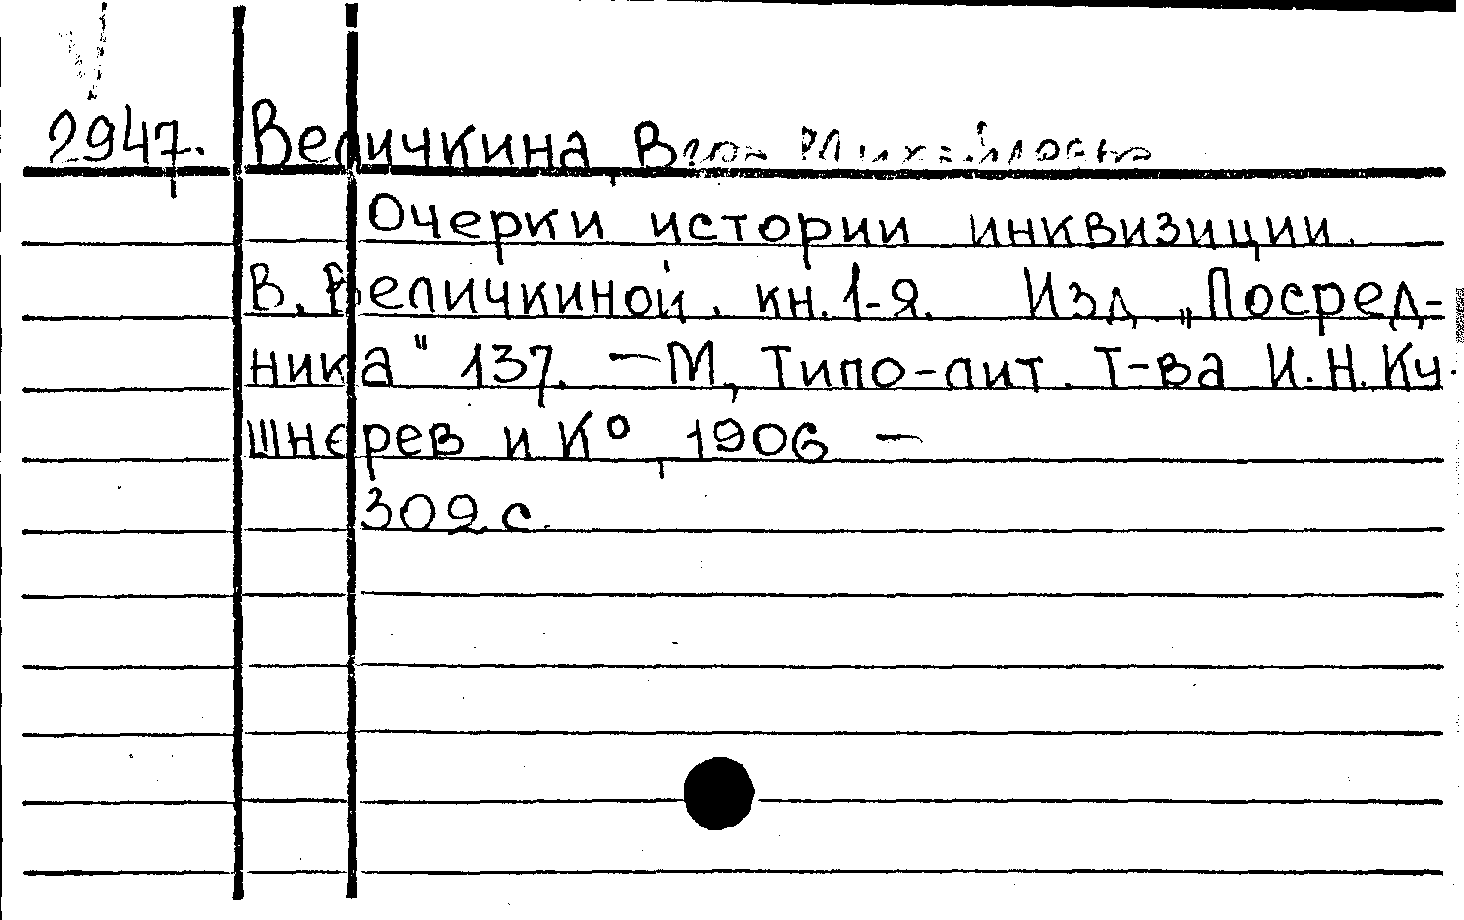 2947. Величкина Вера Михайловна
Очерки истории инквизиции.
В. Величкиной. кн. 1-я. Изд. „Посред-
ника" 137. — М, Типо-лит. Т-ва И. Н. Ку-
шнерев и К°, 1906 —
302 с.